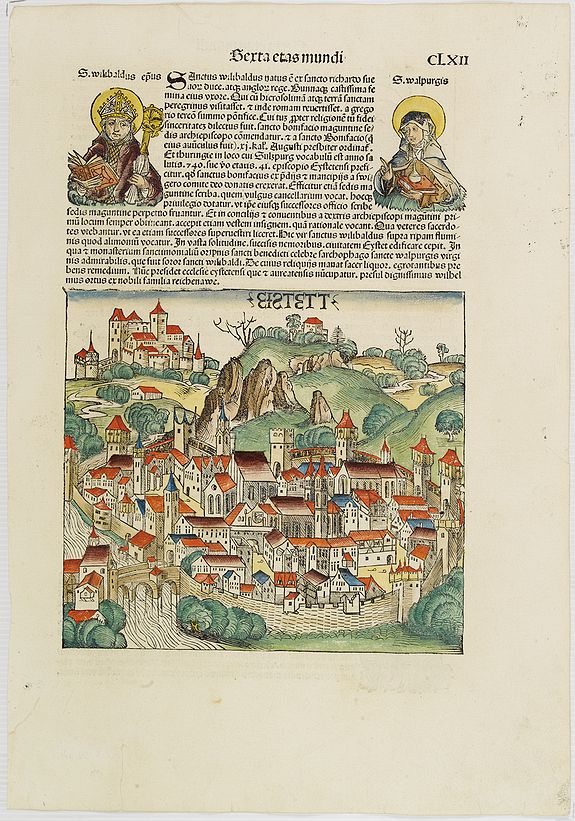 Sexta etas mundi
CLXII
S. wilibaldus ep̄us
S. walpurgis
SAnctus wilibaldus natus ē ex sancto richardo sue
uor̄ duce. atq̄ anglor̄ rege. Bunnaq̄ castissima fe
mina eius vxore. Qui cū hierosolimā atq̄ terrā sanctam
peregrinus visitasset. ⁊ inde romam reuertisset. a grego
rio tercō summo pōtifice. Cui tūc ꝓpter religionē ⁊ fidei
sinceritates dilectus fuit. sancto bonifacio maguntine se⸗
dis archiepiscopo cōmendatur. ⁊ a sancto Bonifacio (cui⸗
eius auūculus fuit) xj. kal. Augusti presbiter ordinat̄.
Et thuringie in loco cui Sulzpurg vocabulū est anno sa
lutis .740. sue vo etatis .41. episcopio Eystetensi prefi⸗
citur. qd̄ sanctus bonifacius ex p̄dijs ⁊ mancipijs a
gero comite deo donatis erexerat. Efficitur etiā sedis ma
guntine scriba. quem vulgus cancellarium vocat. hocq̄
priuilegio dotatur. vt ipse eiusq̄ successores officio scribe
sedis maguntine perpetuo fruantur. Et in concilijs ⁊ conuentibus a dextris archiepiscopi magūtini pri⸗
mū locum semper obtineant. accepit etiam vestem insignem. quā rationale vocant. Qua veteres sacerdo⸗
tes vtebantur. vt ea etiam successores superuestiri liceret. Hic vir sanctus wilibaldus supra ripam flumi⸗
nis quod alimonū vocatur. In vasta solitudine. succisis nemoribus. ciuitatem Eystet edificare cepit. In
qua ⁊ monasterium sanctimonialiū ordinis sancti benedicti celebre sarchophago sancte walpurgis virgi
nis admirabilis. que fuit soror sancti wilibaldi. De cuius reliquijs manat sacer liquor. egrotantibus pre
bens remedium. Nūc presidet ecclesie eystetensi que ⁊ aureatensis nūcupatur. presul dignissimus wilhel
mus ortus ex nobili familia reichenawe.
EISTETT